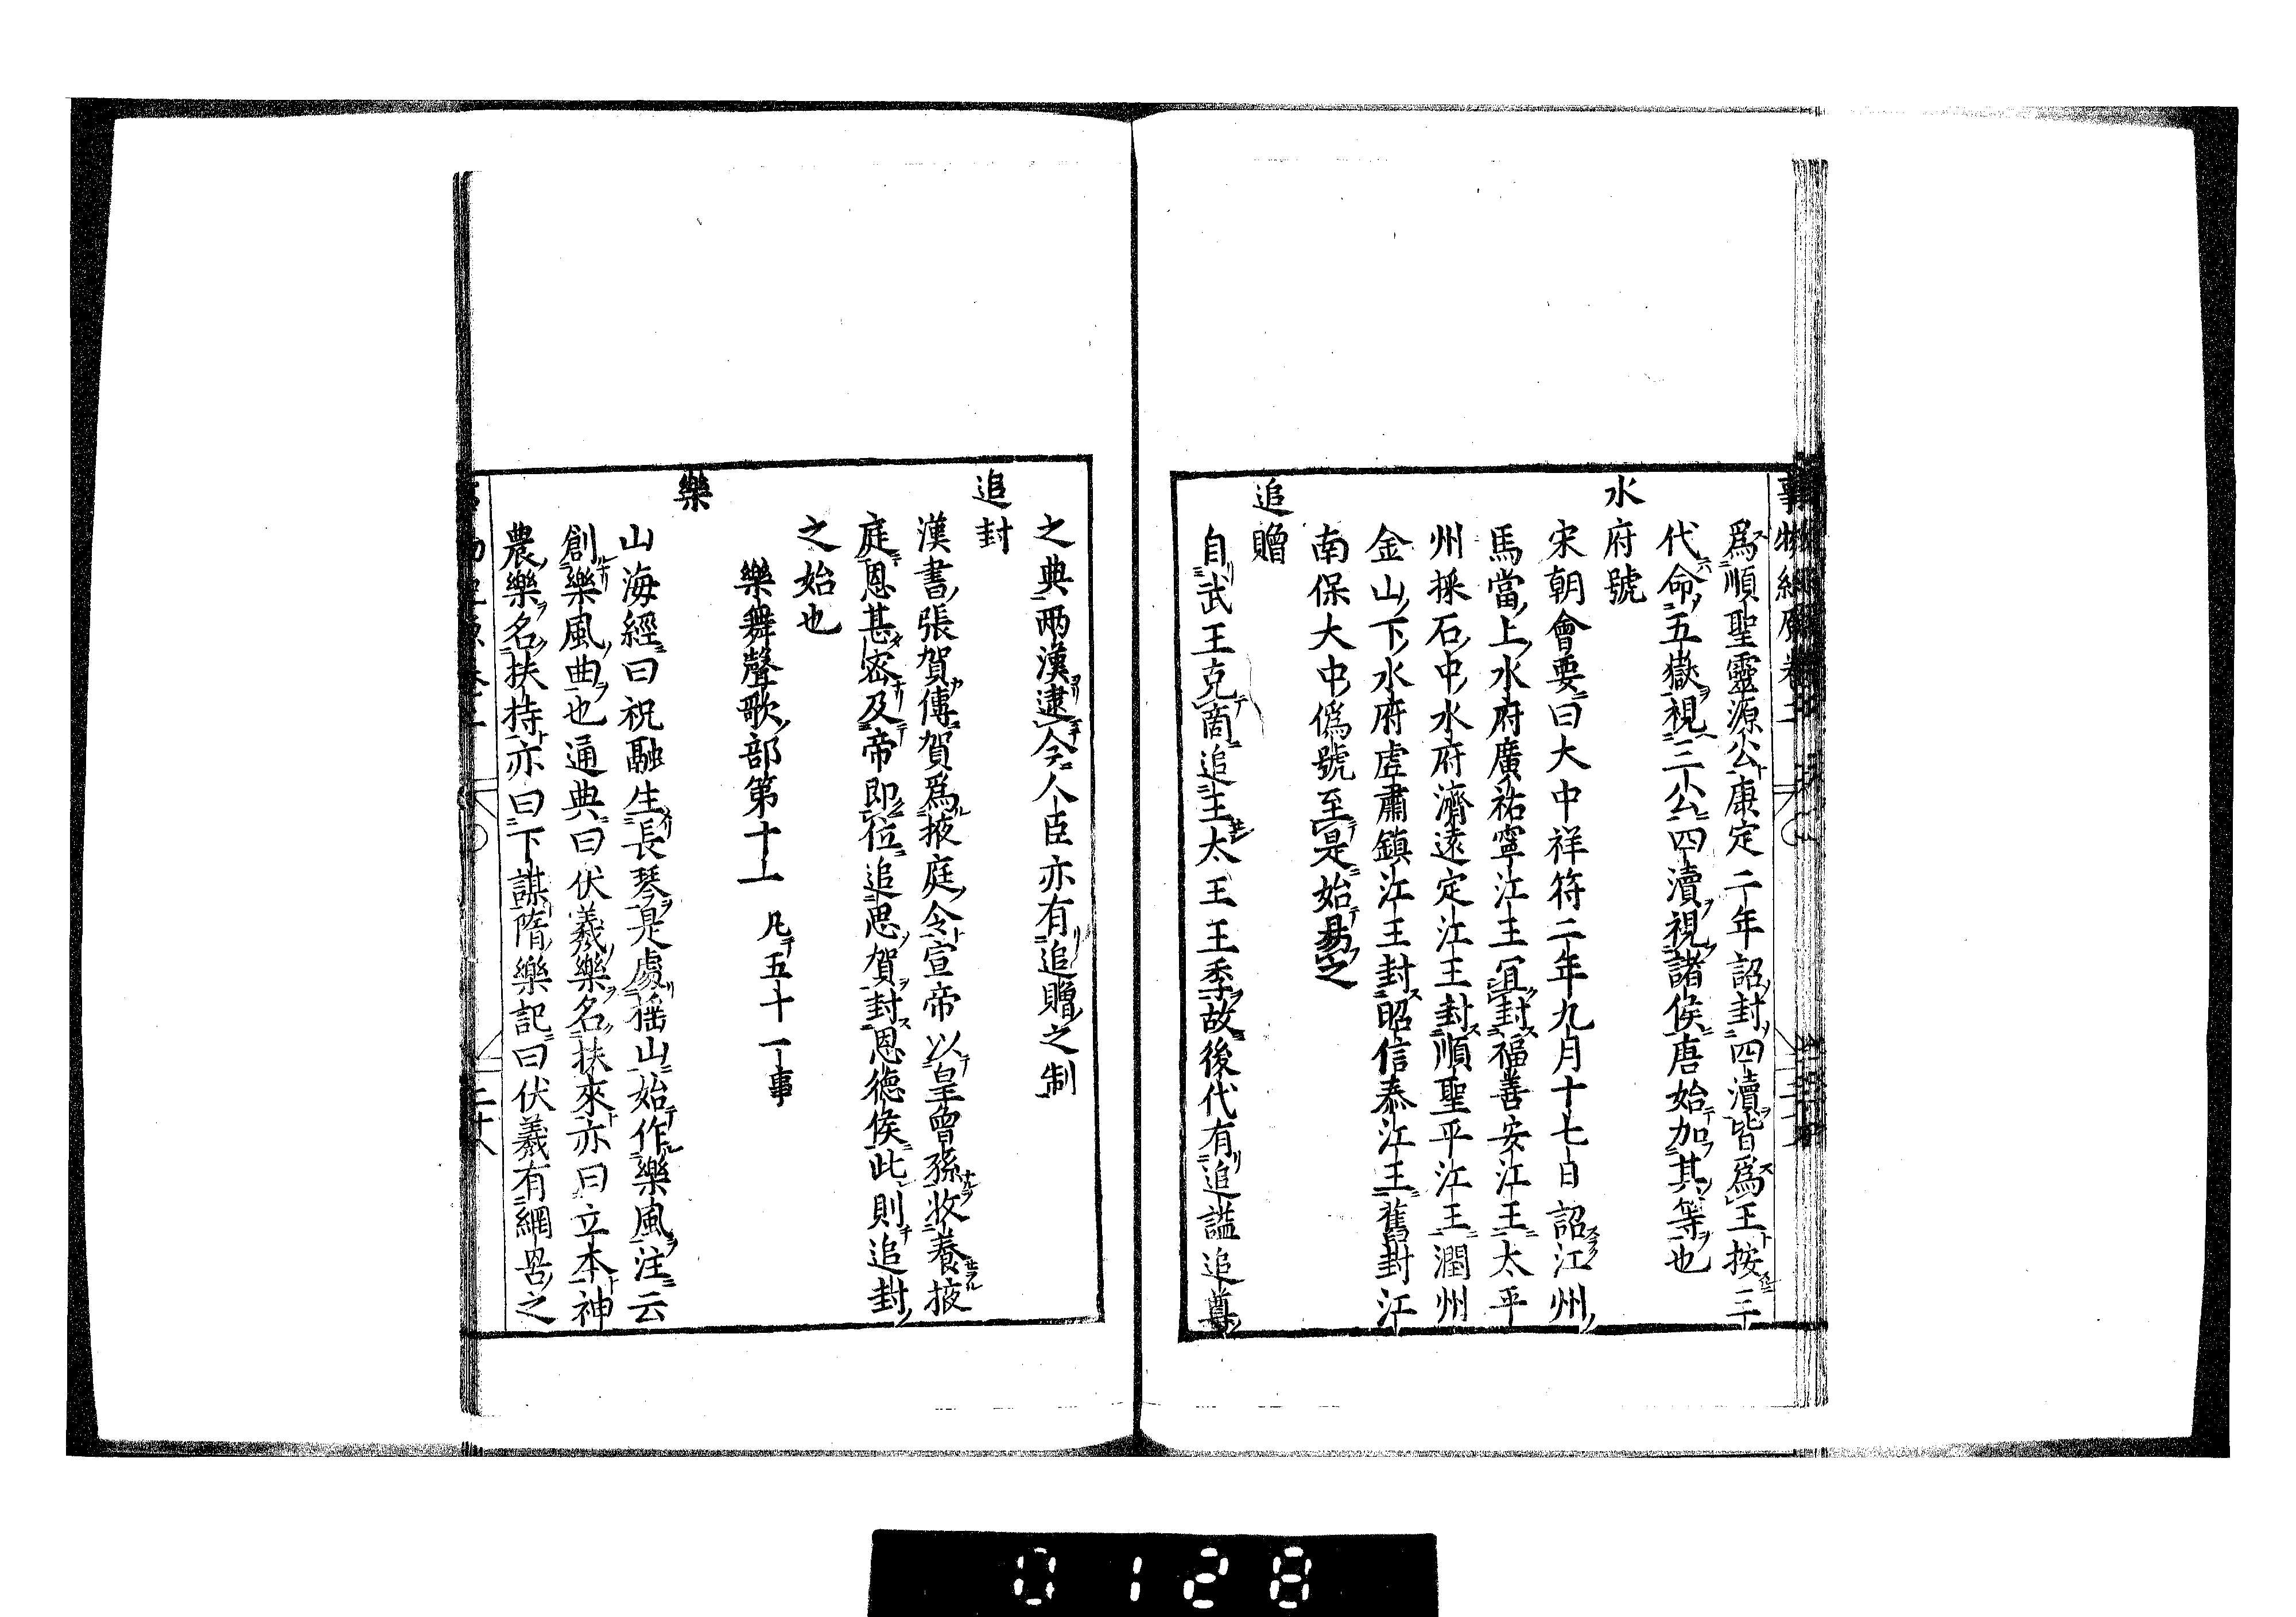 爲順聖靈源公康定二年詔封四瀆皆爲王按三
代命五嶽視三公四瀆視諸侯唐始加其等也
水府號
宋朝會要曰大中祥符二年九月十七日詔江州
馬當上水府廣祐寧江王冝封福善安江王太平
州採石中水府濟遠定江王封順聖平江王潤州
金山下水府虗肅鎮江王封昭信泰江王舊封江
南保大中僞號至是始易之
追贈
自武王克商追王太王王季故後代有追謚追尊
之典兩漢逮今人臣亦有追贈之制
追封
漢書張賀傳賀爲掖庭令宣帝以皇曾孫收養掖
庭恩甚密及帝即位追思賀封恩德侯此則追封
之始也
樂舞聲歌部第十一 凡五十一事
樂
山海經曰祝融生長琴是處搖山始作樂風注云
創樂風曲也通典曰伏羲樂名扶來亦曰立本神
農樂名扶持亦曰下謀隋樂記曰伏羲有網罟之
0128